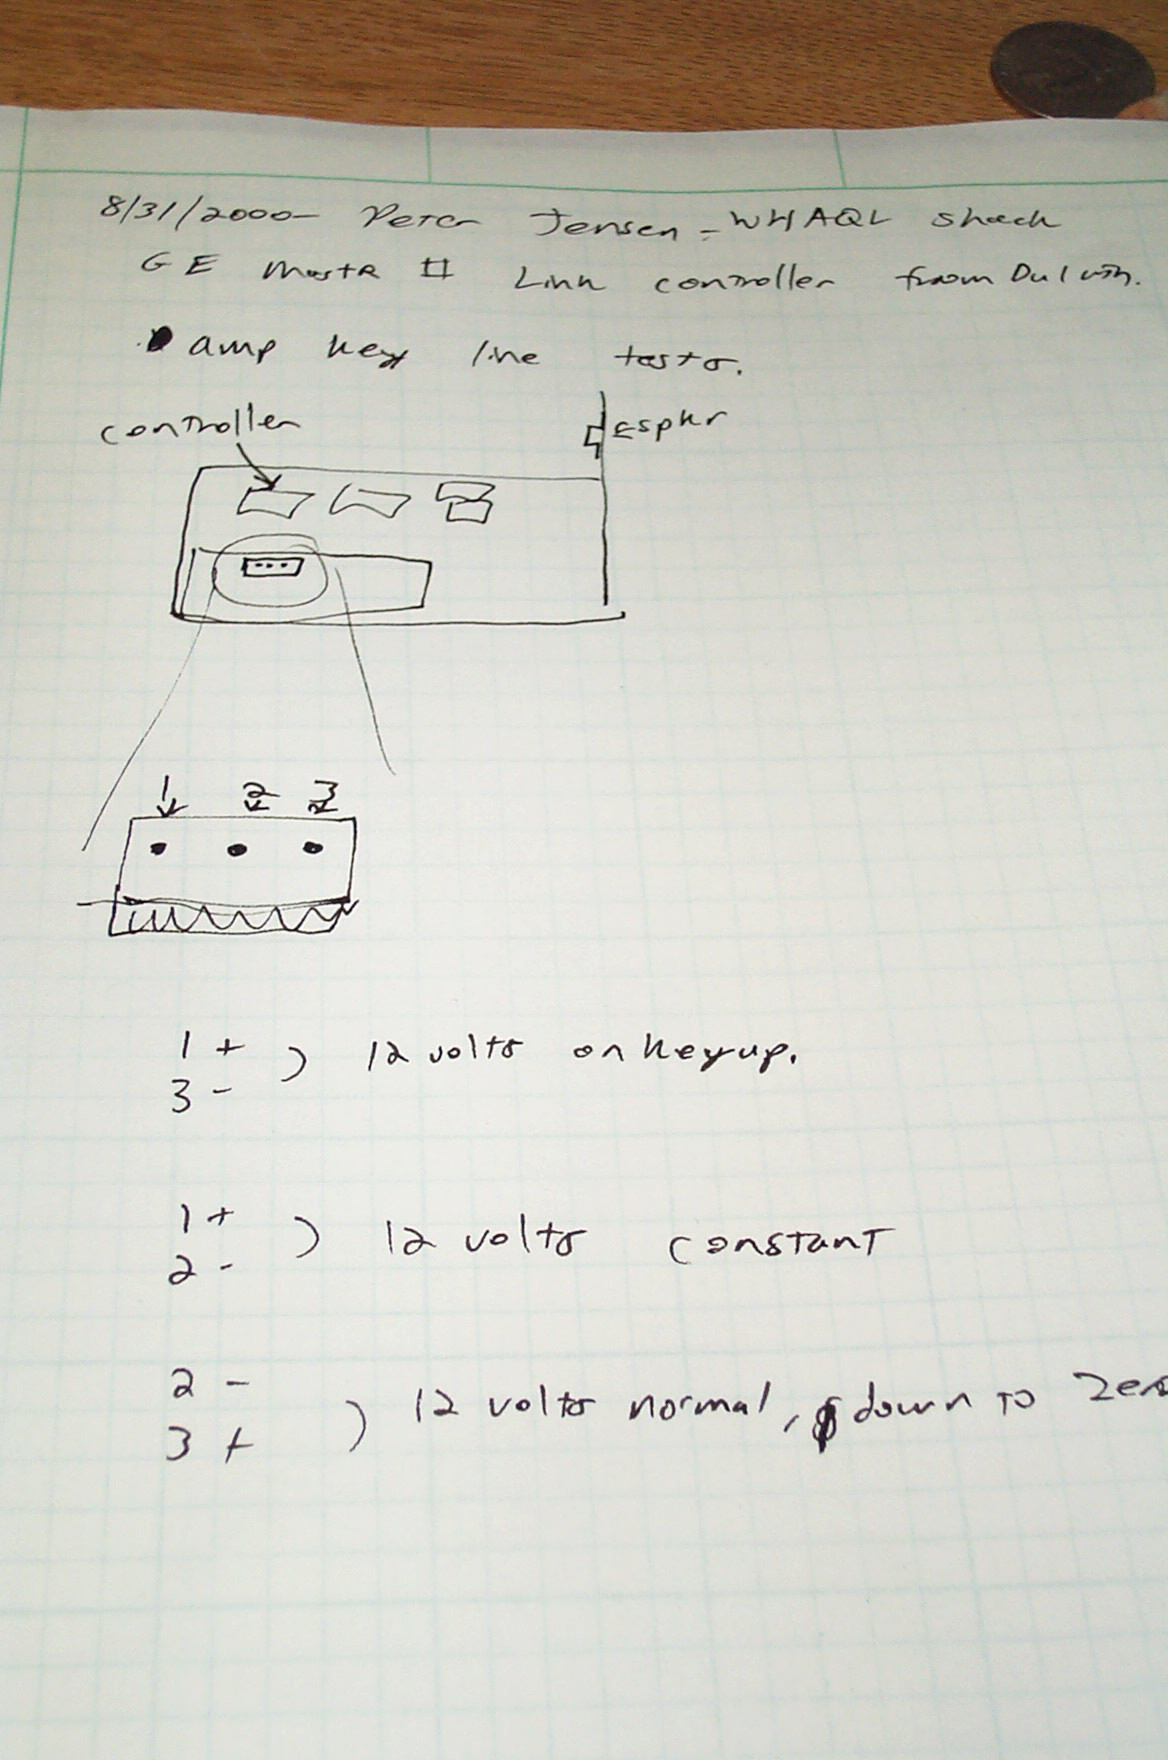 8/31/2000- Peter Jensen - WHAQL shack
GE mastr II Link controller from Duluth.
amp key line tests.
controller
spkr
1 2 3
1 + ) 12 volts on key up.
3 -
1 + ) 12 volts constant
2 -
2 - ) 12 volts normal, down to zero
3 +